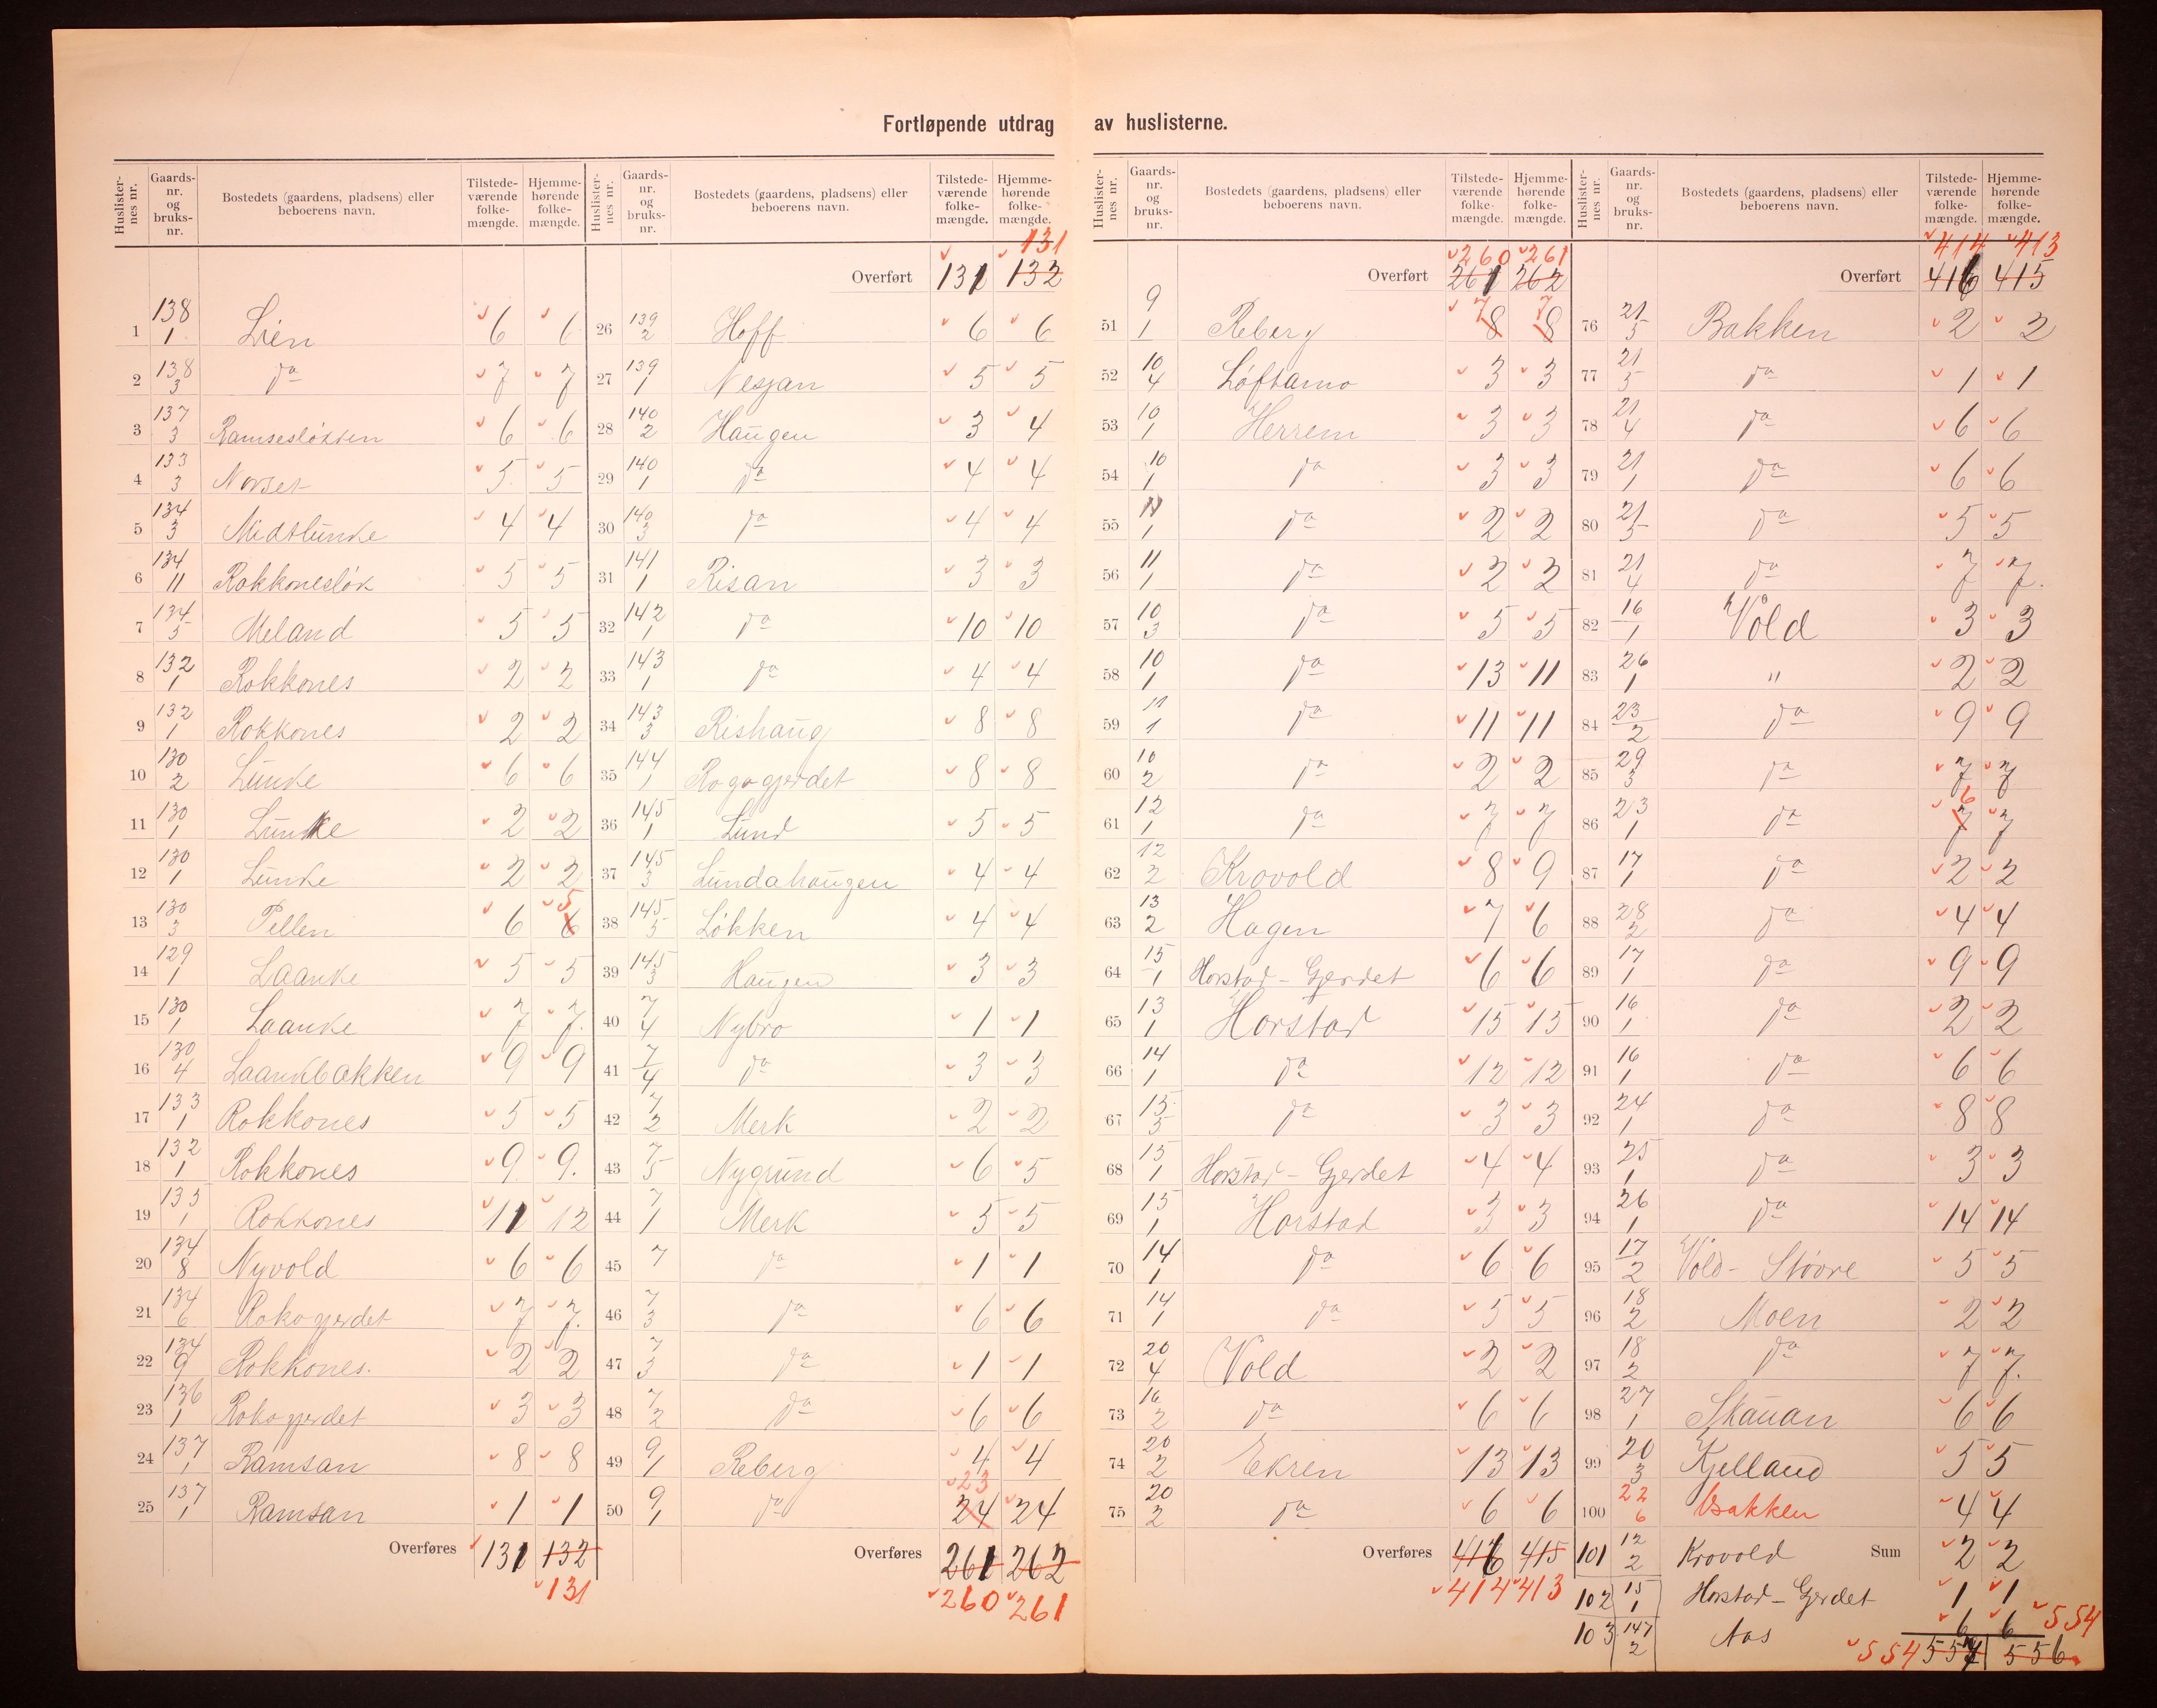 Fortløpende utdrag av huslisterne.
Huslisternes nr. | Gaards-nr. og bruks-nr. | Bostedets (gaardens, pladsens) eller beboerens navn. | Tilstedeværende folkemængde. | Hjemmehørende folkemængde.
1 138/1 Lien 6 6
2 138/3 do 7 7
3 137/3 Ramsesløkken 6 6
4 133/3 Norset 5 5
5 134/3 Midtlunke 4 4
6 134/11 Rokkonesløk 5 5
7 134/5 Meland 5 5
8 132/1 Rokkones 2 2
9 132/1 Rokkones 2 2
10 130/2 Lunke 6 6
11 130/1 Lunke 2 2
12 130/1 Lunke 2 2
13 130/3 Pellen 6 6 5
14 129/1 Laanke 5 5
15 130/1 Laanke 7 7.
16 130/4 Laankbakken 9 9
17 133/1 Rokkones 5 5
18 132/1 Rokkones 9 9.
19 135/1 Rokkones 11 12
20 134/8 Nyvold 6 6
21 134/6 Rokogjerdet 7 7.
22 134/9 Rokkones. 2 2
23 136/1 Rokogjerdet 3 3
24 137/1 Ramsan 8 8
25 137/1 Ramsan 1 1
Overføres 131 132
131
Huslisternes nr. | Gaards-nr. og bruks-nr. | Bostedets (gaardens, pladsens) eller beboerens navn. | Tilstedeværende folkemængde. | Hjemmehørende folkemængde.
131
Overført 131 132
26 139/2 Hoff 6 6
27 139/1 Nesjan 5 5
28 140/2 Haugen 3 4
29 140/1 do 4 4
30 140/3 do 4 4
31 141/1 Risan 3 3
32 142/1 do 10 10
33 143/1 do 4 4
34 143/3 Rishaug 8 8
35 144/1 Rogogjerdet 8 8
36 145/1 Lund 5 5
37 145/3 Lundahaugen 4 4
38 145/5 Løkken 4 4
39 145/3 Haugen 3 3
40 7/4 Nybro 1 1
41 7/4 do 3 3
42 7/2 Merk 2 2
43 7/5 Nygrund 6 5
44 7/1 Merk 5 5
45 7 do 1 1
46 7/3 do 6 6
47 7/3 do 1 1
48 7/2 do 6 6
49 9/1 Reberg 4 4
50 9/1 do 24 23 24
Overføres 261 262
260 261
Huslisternes nr. | Gaards-nr. og bruks-nr. | Bostedets (gaardens, pladsens) eller beboerens navn. | Tilstedeværende folkemængde. | Hjemmehørende folkemængde.
260 261
Overført 261 262
51 9/1 Reberg 8 7 8 7
52 10/4 Løftamo 3 3
53 10/1 Herrem 3 3
54 10/1 do 3 3
55 11/1 do 2 2
56 11/1 do 2 2
57 10/3 do 5 5
58 10/1 do 13 11
59 11/1 do 11 11
60 10/2 do 2 2
61 12/1 do 7 7
62 12/2 Krovold 8 9
63 13/2 Hagen 7 6
64 15/1 Horstad - Gjerdet 6 6
65 13/1 Horstad 15 15
66 14/1 do 12 12
67 15/5 do 3 3
68 15/1 Horstad - Gjerdet 4 4
69 15/1 Horstad 3 3
70 14/1 do 6 6
71 14/1 do 5 5
72 20/4 Vold 2 2
73 16/2 do 6 6
74 20/2 Ekren 13 13
75 20/2 do 6 6
Overføres 416 415
414 413
Huslisternes nr. | Gaards-nr. og bruks-nr. | Bostedets (gaardens, pladsens) eller beboerens navn. | Tilstedeværende folkemængde. | Hjemmehørende folkemængde.
414 413
Overført 416 415
76 21/5 Bakken 2 2
77 21/5 do 1 1
78 21/4 do 6 6
79 21/1 do 6 6
80 21/5 do 5 5
81 21/4 do 7 7.
82 16/1 Vold 3 3
83 26/1 " 2 2
84 23/2 do 9 9
85 29/3 do 7 7
86 23/1 do 7 6 7
87 17/1 do 2 2
88 28/2 do 4 4
89 17/1 do 9 9
90 16/1 do 2 2
91 16/1 do 6 6
92 24/1 do 8 8
93 25/1 do 3 3
94 26/1 do 14 14
95 17/2 Vold - Støore 5 5
96 18/2 Moen 2 2
97 18/2 do 7 7.
98 27/1 Skauan 6 6
99 20/3 Kjelland 5 5
100 22/6 Bakken 4 4
101 12/2 Krovold Sum 2 2
102 15/1 Horstad - Gjerdet 1 1
103 147/2 Aas 6 6 554
554 557 556